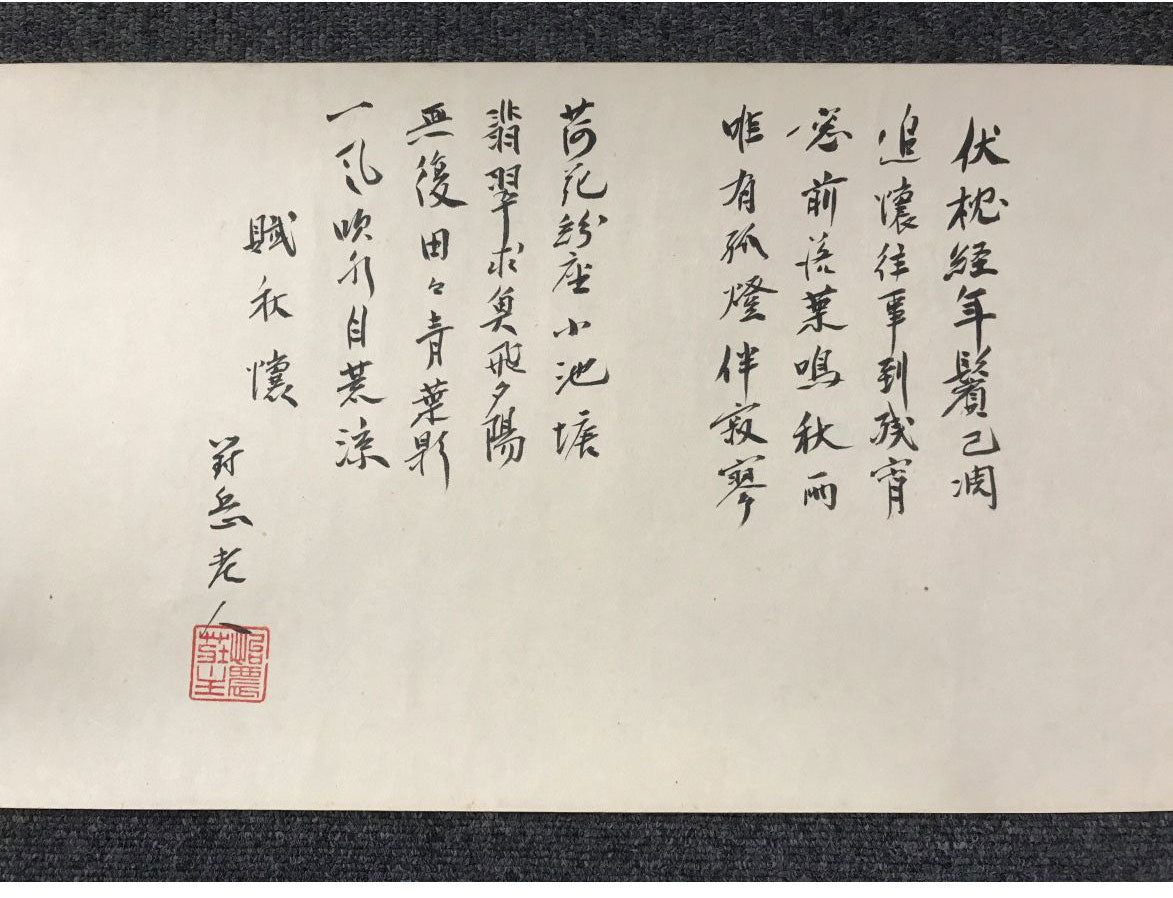 伏枕経年鬢已凋
追懐往事到残宵
窓前落葉鳴秋雨
唯有孤燈伴寂寥
荷花粉座小池塘
翡翠求魚飛夕陽
無復田々青葉影
一風吹水自荒涼
賦秋懐
対岳老人
農
荘主